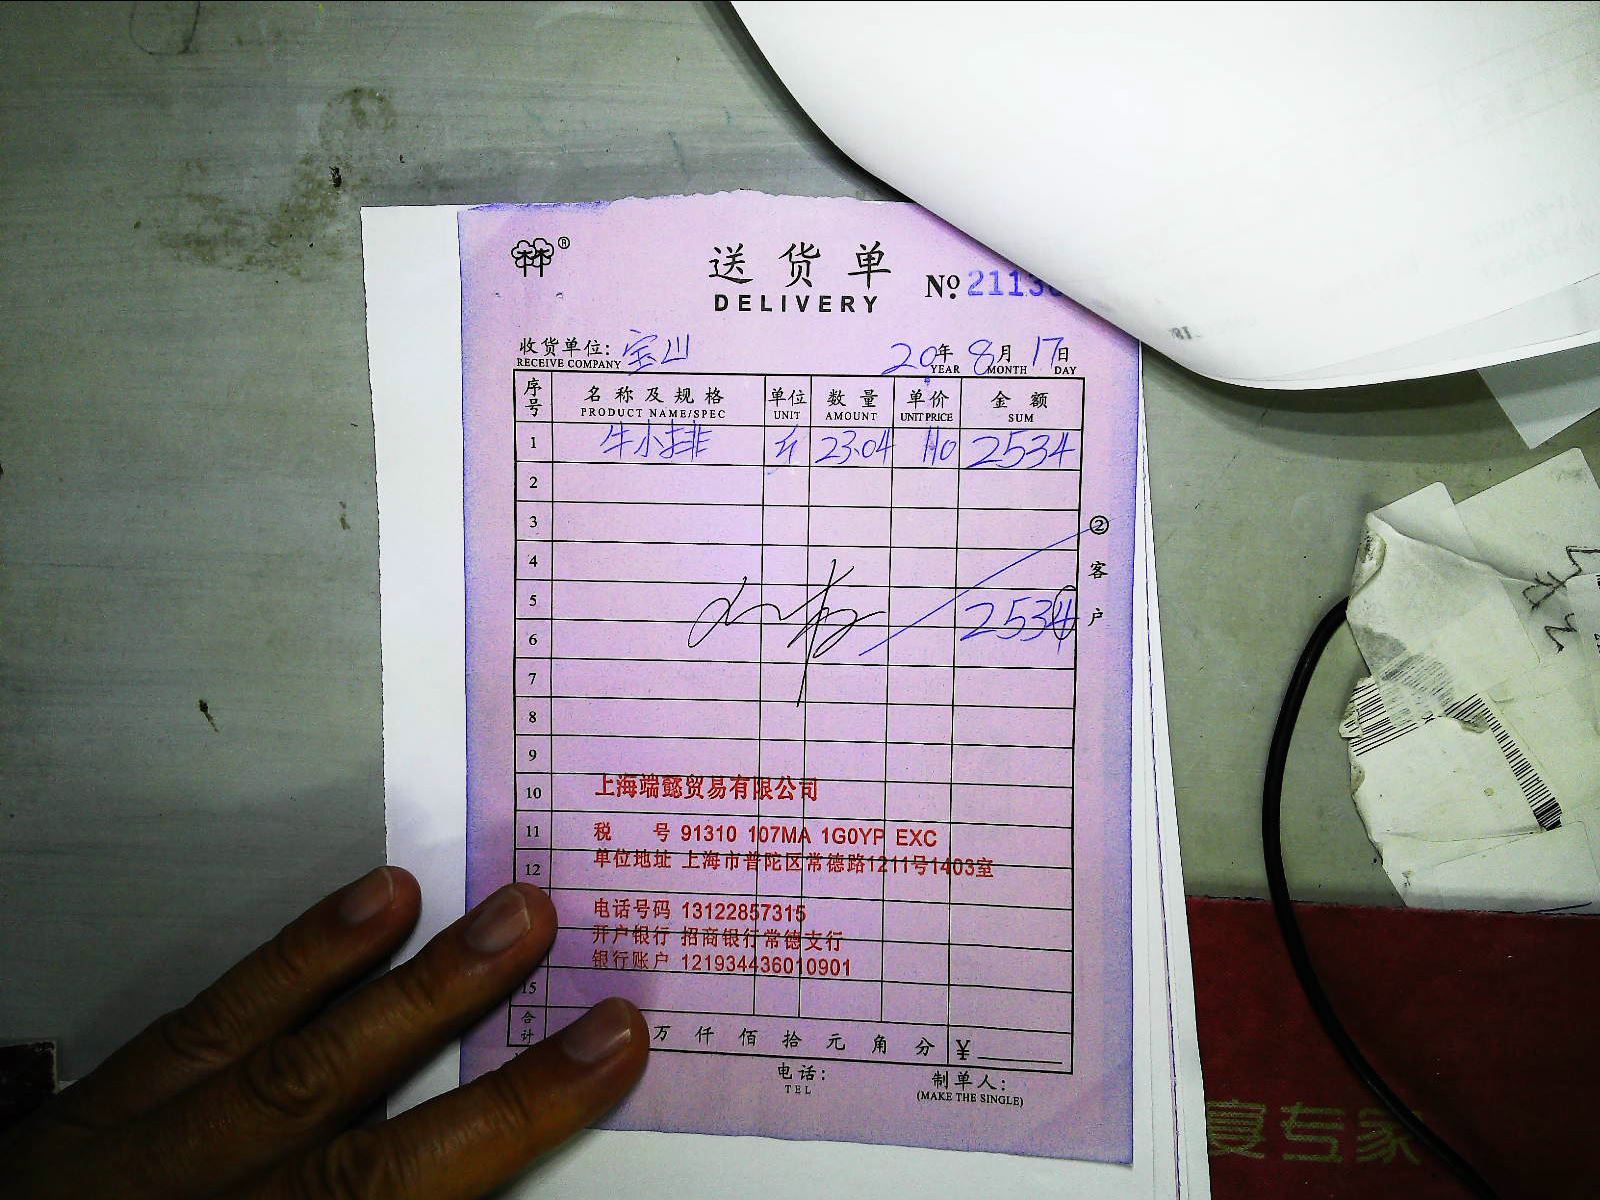 送货单
DELIVERY
No. 2113
收货单位: 宝山
RECEIVE COMPANY
20年 8月 17日
YEAR MONTH DAY
序号 名称及规格 单位 数量 单价 金额
PRODUCT NAME/SPEC UNIT AMOUNT UNIT PRICE SUM
1 牛小排 斤 23.04 110 2534
2
3
②客户
4
5
2534
6
7
8
9
10 上海端懿贸易有限公司
11 税 号 91310 107MA 1G0YP EXC
12 单位地址 上海市普陀区常德路1211号1403室
电话号码 13122857315
开户银行 招商银行常德支行
银行账户 121934436010901
15
合计 万 仟 佰 拾 元 角 分 ¥
电话:
TEL
制单人:
(MAKE THE SINGLE)
宴专家